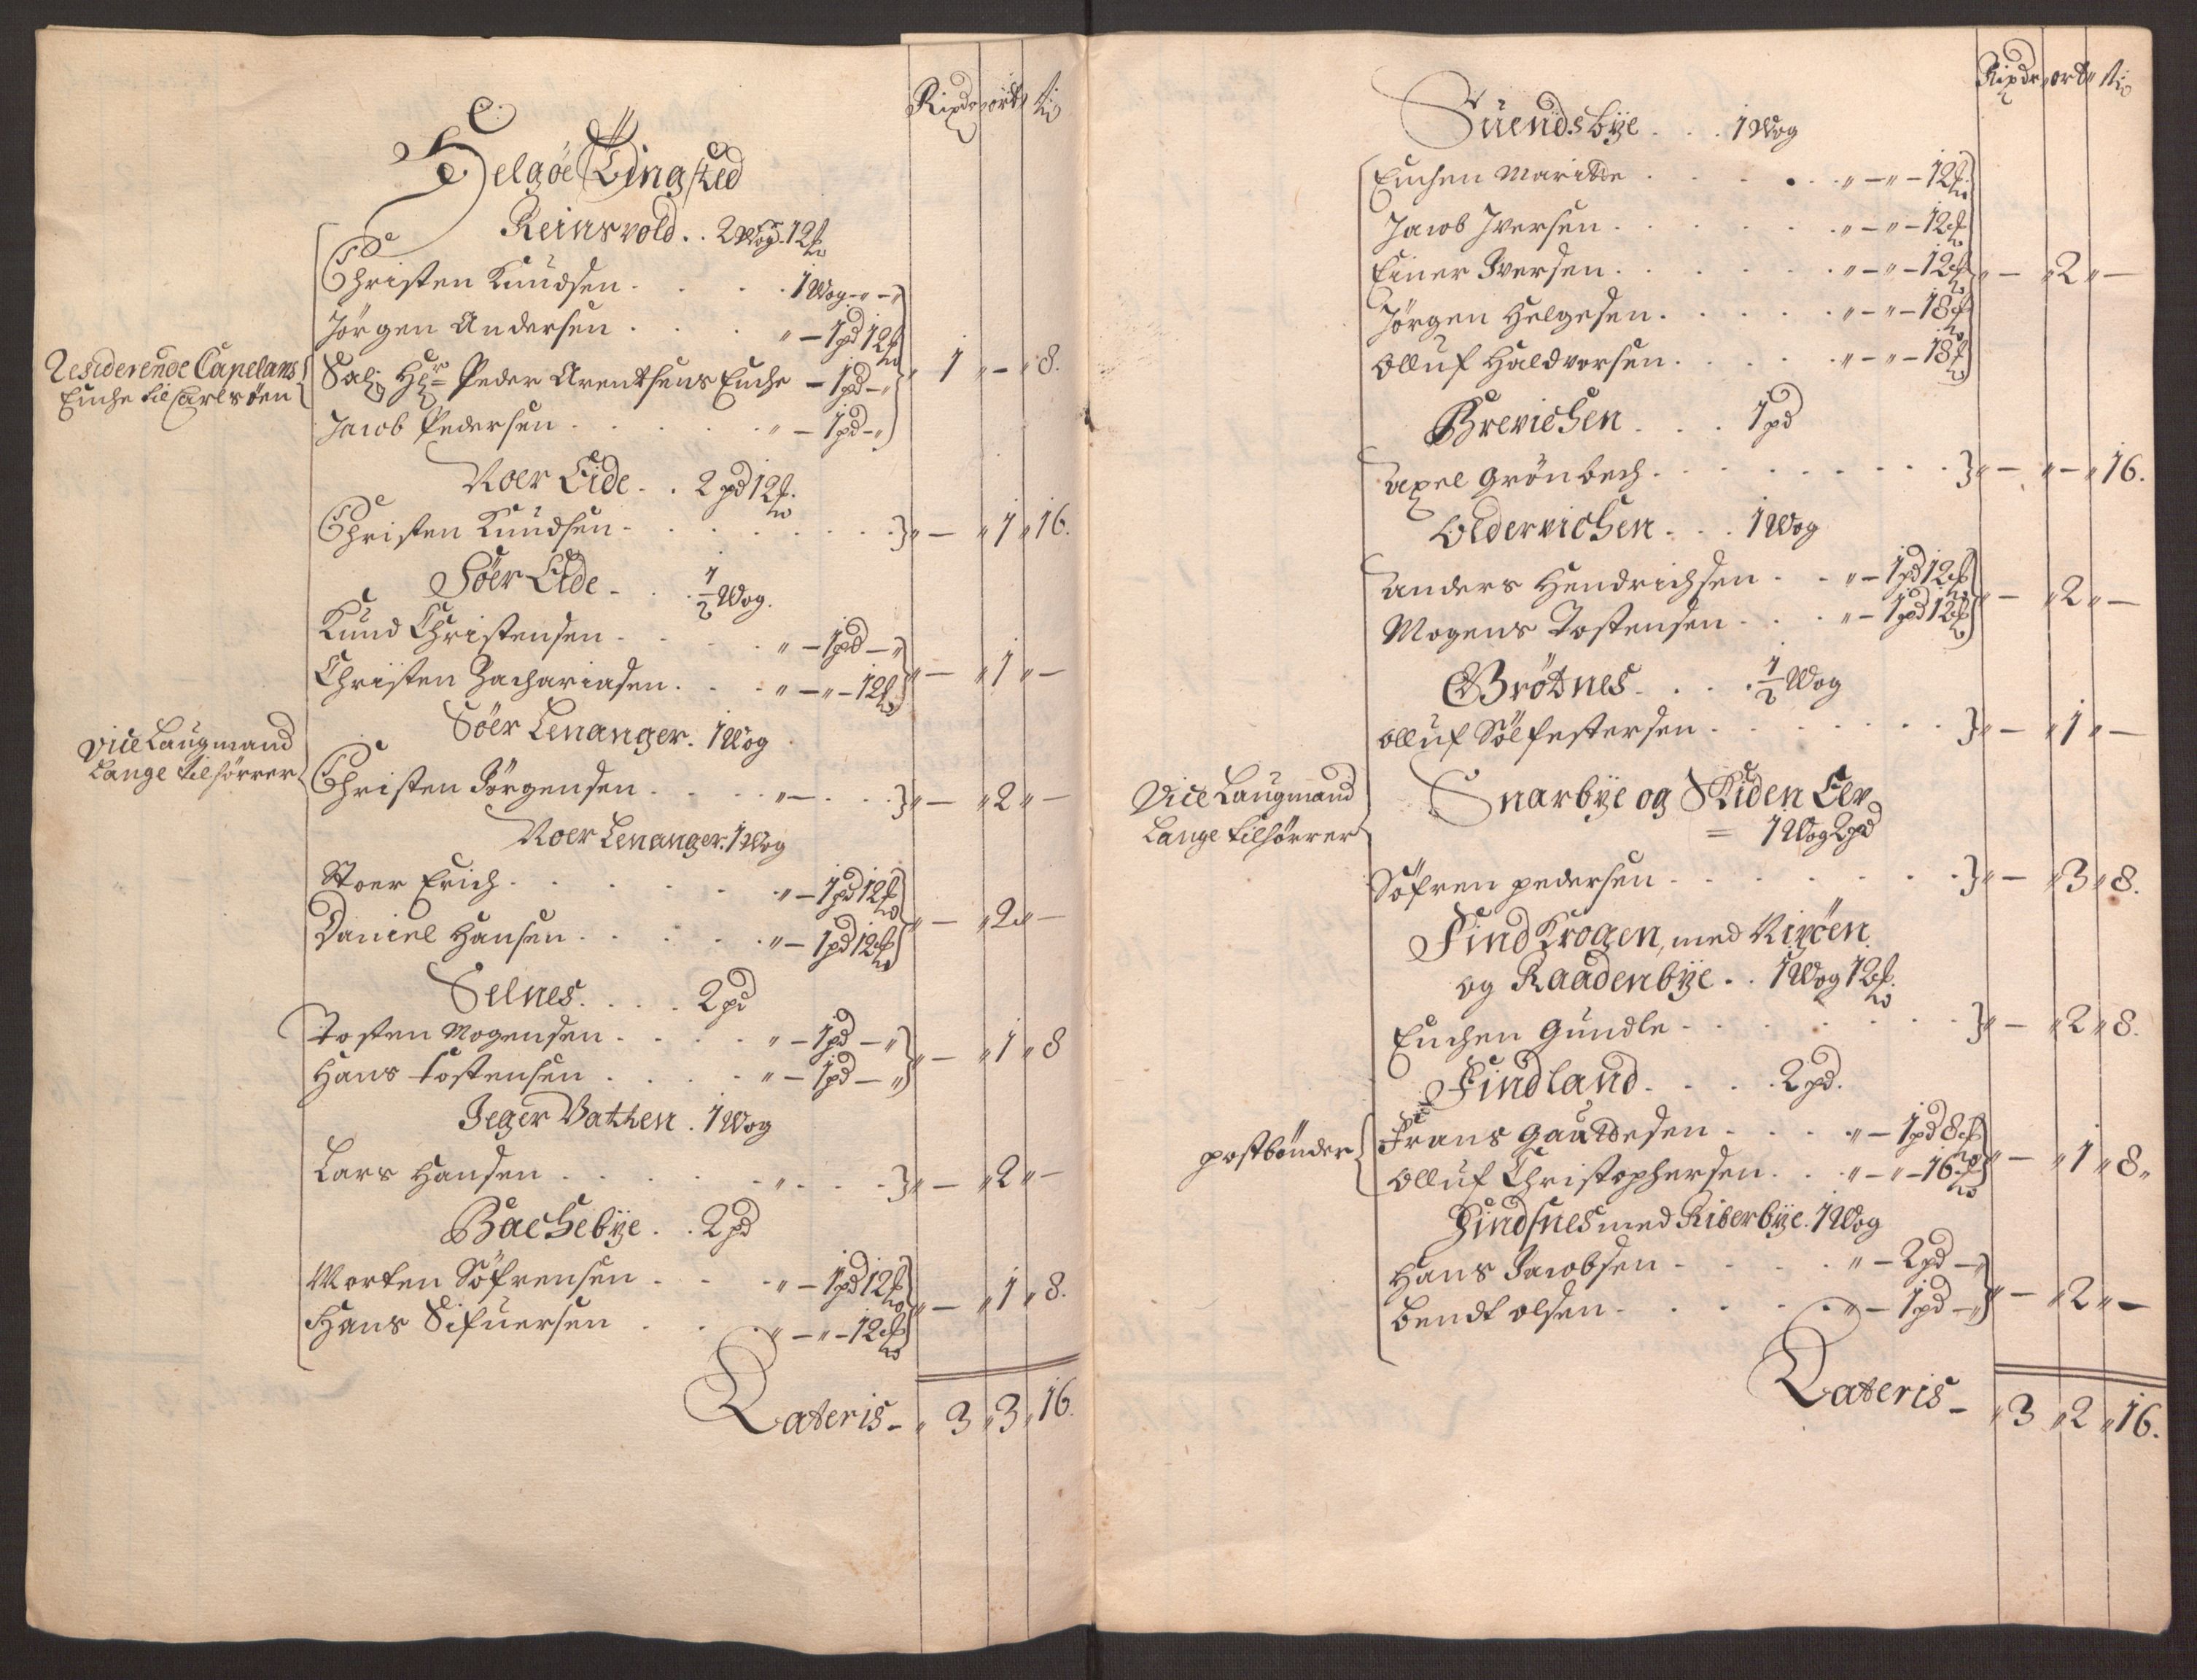 Rixdr ort ß
Helgøe Tingsted
Reinsvold . . 2 Wog. 12 ℔
Christen Knudsen . . . 1 Wog - " - "
Jörgen Andersen . . . " - 1 pd 12 ℔
Residerende Capelans
Enche til Carlsöen
Sal: Hr: Peder Arenthsens Enche - 1 pd - " " 1 " - " 8.
Jacob Pedersen . . . " - 1 pd - "
Noer Eide . . 2 pd 12 ℔.
Christen Knudsen . . . } " - " 1 " 16.
Söer Eide . . ½ Wog.
Knud Christensen . . . " - 1 pd - "
Christen Zachariasen . . . " - " - 12 ℔ " - " 1 " -
Söer Lenanger . 1 Wog
Vice Laugmand
Lange tilhörrer
Christen Jörgensen . . . " - . . } " - " 2 " -
Noer Lenanger . 1 Wog
Stoer Erich . . . " - 1 pd 12 ℔
Daniel Hansen . . . " - 1 pd 12 ℔ " - " 2 " -
Selnes . . . 2 pd
Tosten Mogensen . . . " - 1 pd - "
Hans Tostensen . . . " - 1 pd - " " - " 1 " 8
Jeger Vathen . 1 Wog
Lars Hansen . . . " . . . } " - " 2 " -
Bachebye . . 2 pd
Morten Söfrensen . . . " - 1 pd 12 ℔
Hans Sifuersen . . . " - " - 12 ℔ " - " 1 " 8.
Lateris - " 3 " 3 " 16.
Rixdr ort ß
Suendsbye . . . 1 Wog
Enchen Maritte . . . " - " - 12 ℔
Jacob Iversen . . . " - " - 12 ℔
Einer Iversen . . . " - " - 12 ℔ " - " 2 " -
Jörgen Helgesen . . . " - " - 18 ℔
Olluf Haldvorsen . . . " - " - 18 ℔
Brevichen . . . 1 pd
Axel Grönbech . . . } " - " - " 16.
Oldervichen . . . 1 Wog
Anders Hendrichsen . . " - 1 pd 12 ℔
Mogens Tostensen . . . " - 1 pd 12 ℔ " - " 2 " -
Brötnes . . . ½ Wog
Olluf Sölfestersen . . . } " - " 1 " -
Vice Laugmand
Lange tilhörrer
Snarbye og Skiden Elv
= 1 Wog 2 pd
Söfren Pedersen . . . } " - " 3 " 8.
Find Krogen, med
og Raadenbye . . 1 Wog 12 ℔.
Enchen Gundle . . . } " - " 2 " 8.
Findland . . . 2 pd.
postbönder
Frans Gauttesen . . . " - 1 pd 8 ℔
Olluf Christophersen . . " - " - 16 ℔ " - " 1 " 8 "
Findsnes med Riberbye . 1 Wog
Hans Jacobsen . . . " - 2 pd - "
Bendt Olsen . . . " - 1 pd - " " - " 2 " -
Lateris - " 3 " 2 " 16.